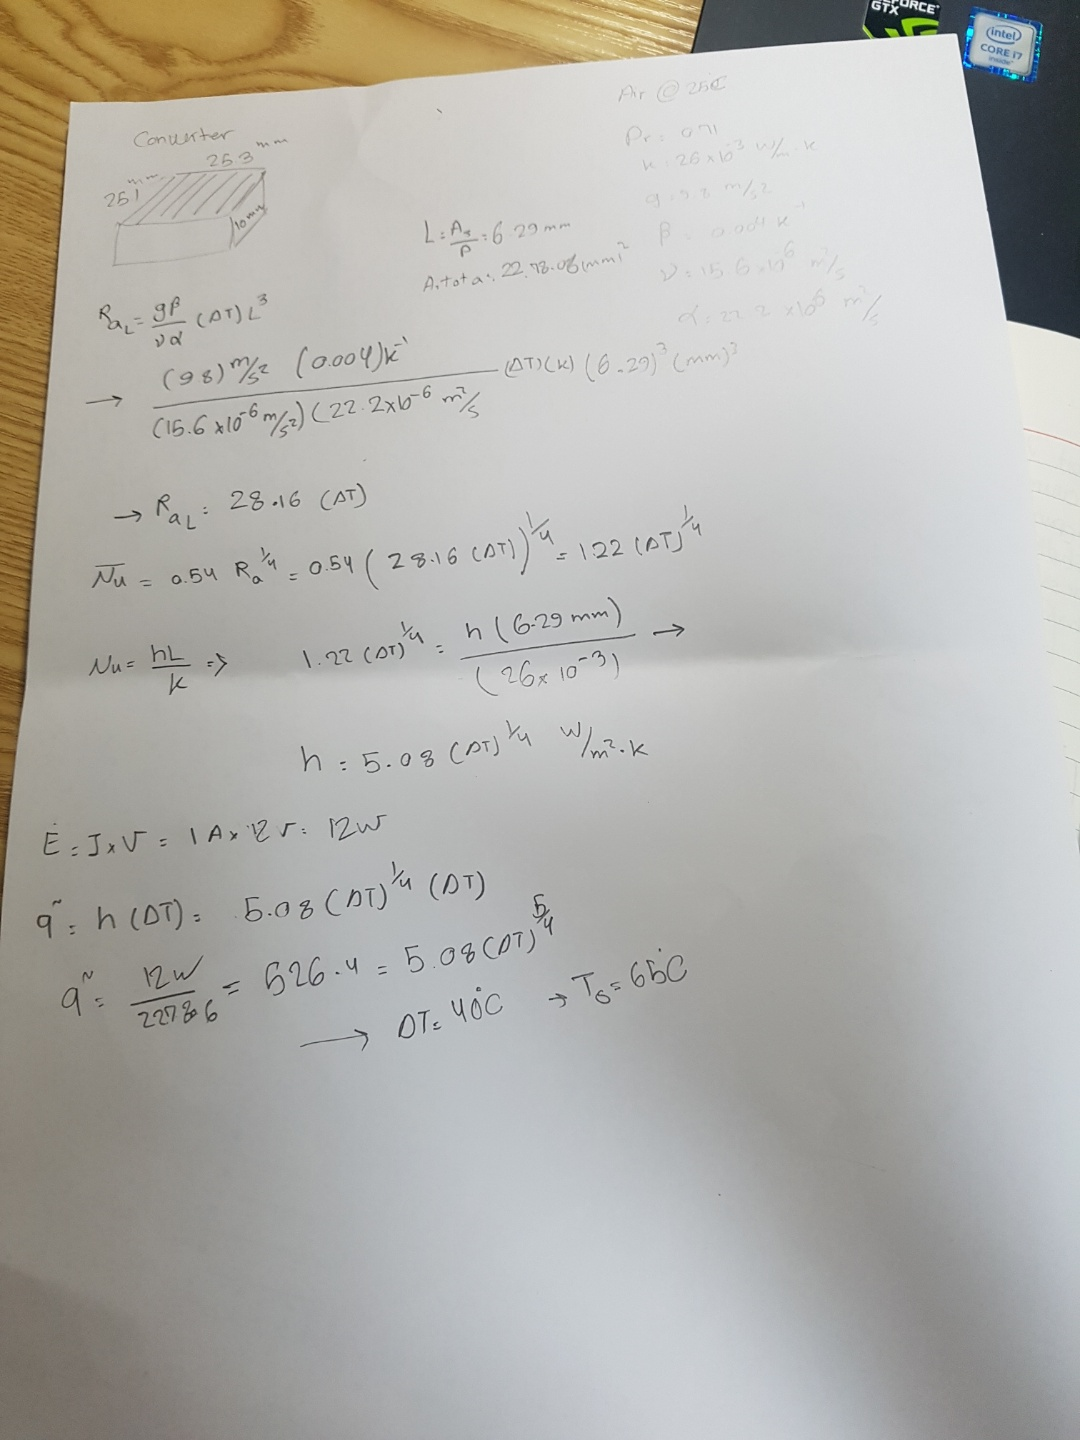 GEFORCE
GTX
intel
CORE i7
inside
Air @ 25°C
Converter
25.3 mm
25.1 mm
10mm
Pr = 0.71
k = 26 x 10^-3 W/m.k
g = 9.8 m/s2
β = 0.004 k^-1
ν = 15.6 x10^-6 m²/s
α = 22.2 x10^-6 m²/s
L = As/P = 6.29 mm
A,total = 2278.06 (mm)²
RaL = gβ/να (ΔT) L³
→ (9.8) m/s² (0.004)k^-1 / (15.6 x10^-6 m/s²) (22.2x10^-6 m²/s) (ΔT)(K) (6.29)³ (mm)³
→ RaL = 28.16 (ΔT)
Nu = 0.54 Ra^1/4 = 0.54 (28.16 (ΔT))^1/4 = 1.22 (ΔT)^1/4
Nu = hL/k => 1.22 (ΔT)^1/4 = h (6.29 mm) / (26x10^-3) →
h = 5.08 (ΔT)^1/4 W/m².k
Ė = I x V = 1 A x 12 V = 12W
q" = h (ΔT) = 5.08 (ΔT)^1/4 (ΔT)
q" = 12W / 2278.6 = 526.4 = 5.08 (ΔT)^5/4
→ ΔT = 40°C → Ts = 65°C